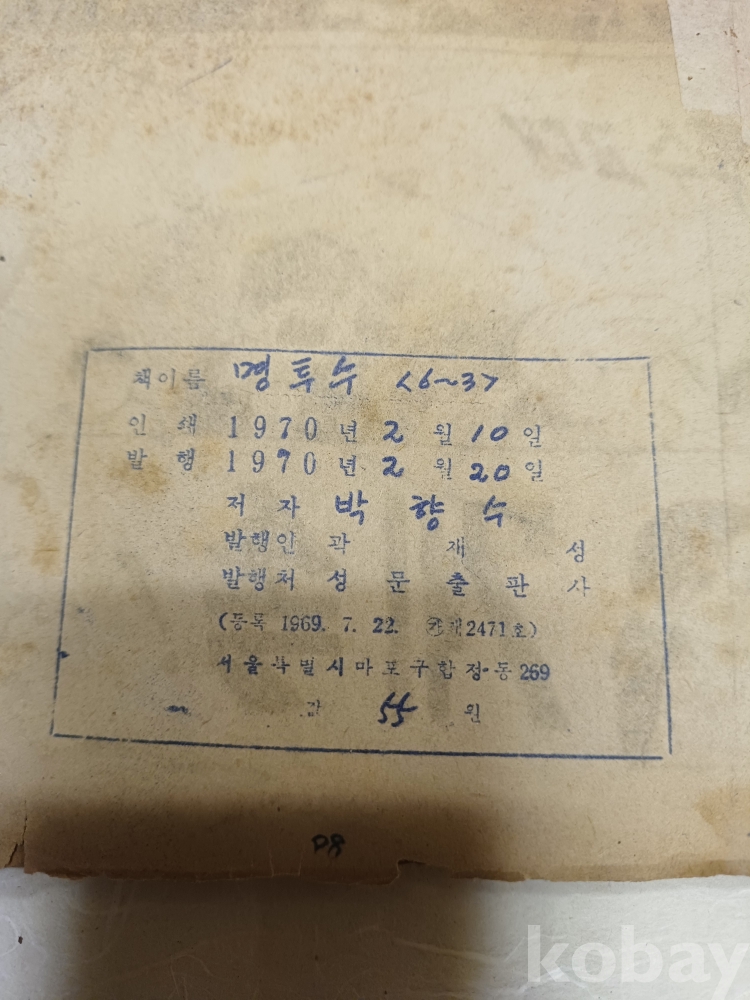 책이름 명투수 <6~3>
인쇄 1970년 2월 10일
발행 1970년 2월 20일
저자 박향수
발행인 곽재성
발행처 성문출판사
(등록 1969. 7. 22. 2471호)
서울특별시마포구합정동269
값 55원
P8
kobay